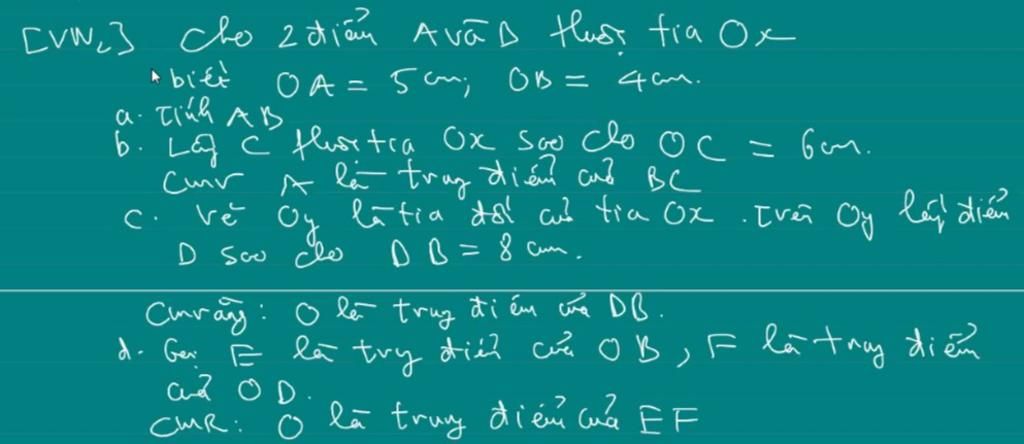 [VN2] Cho 2 điểm A và B thuộc tia Ox
biết OA = 5cm; OB = 4cm.
a. Tính AB
b. Lấy C thuộc tia Ox sao cho OC = 6cm.
CMR A là trung điểm của BC
c. Vẽ Oy là tia đối của tia Ox. Trên Oy lấy điểm
D sao cho DB = 8cm.
Cm rằng: O là trung điểm của DB.
d. Gọi E là trung điểm của OB, F là trung điểm
của OD.
CMR: O là trung điểm của EF